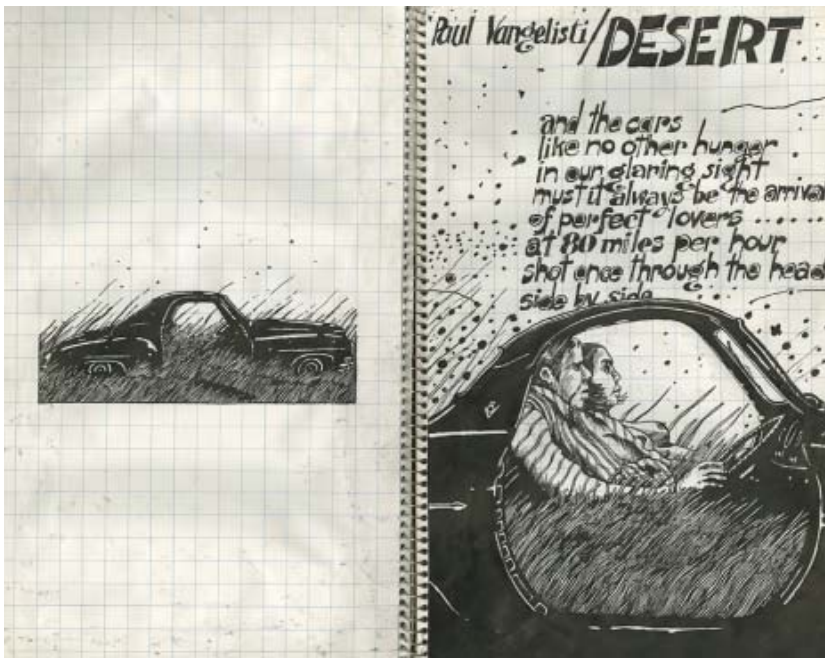 Paul Vangelisti/DESERT
and the cars
like no other hunger
in our glaring sight
must it always be the arrival
of perfect lovers ......
at 80 miles per hour
shot once through the head
side by side